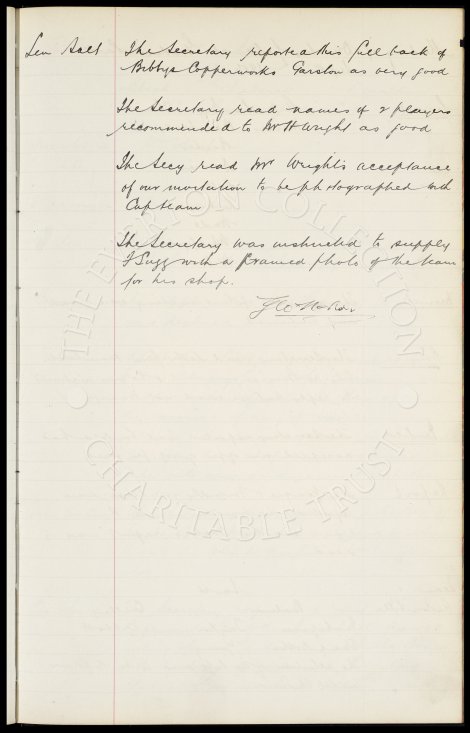 The Secretary reported this full back of
Bibbys Copperworks Garston as very good
The Secretary read names of 2 players
recommended to Mr H Wright as good
The Secy read Mr Wright's acceptance
of our invitation to be photographed with
Cup team
The Secretary was instructed to supply
F Sugg with a framed photo of the team
for his shop.
THE EVERTON COLLECTION
CHARITABLE TRUST